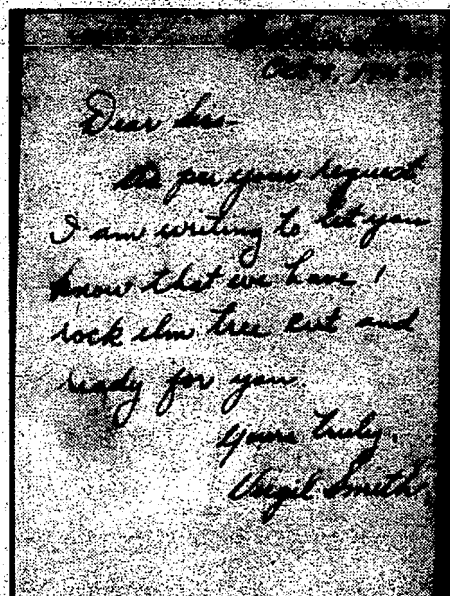 Oct 4,
Dear Sir-
As per your request
I am writing to let you
know that we have 1
rock elm tree cut and
ready for you
Yours truly,
Virgil Smith